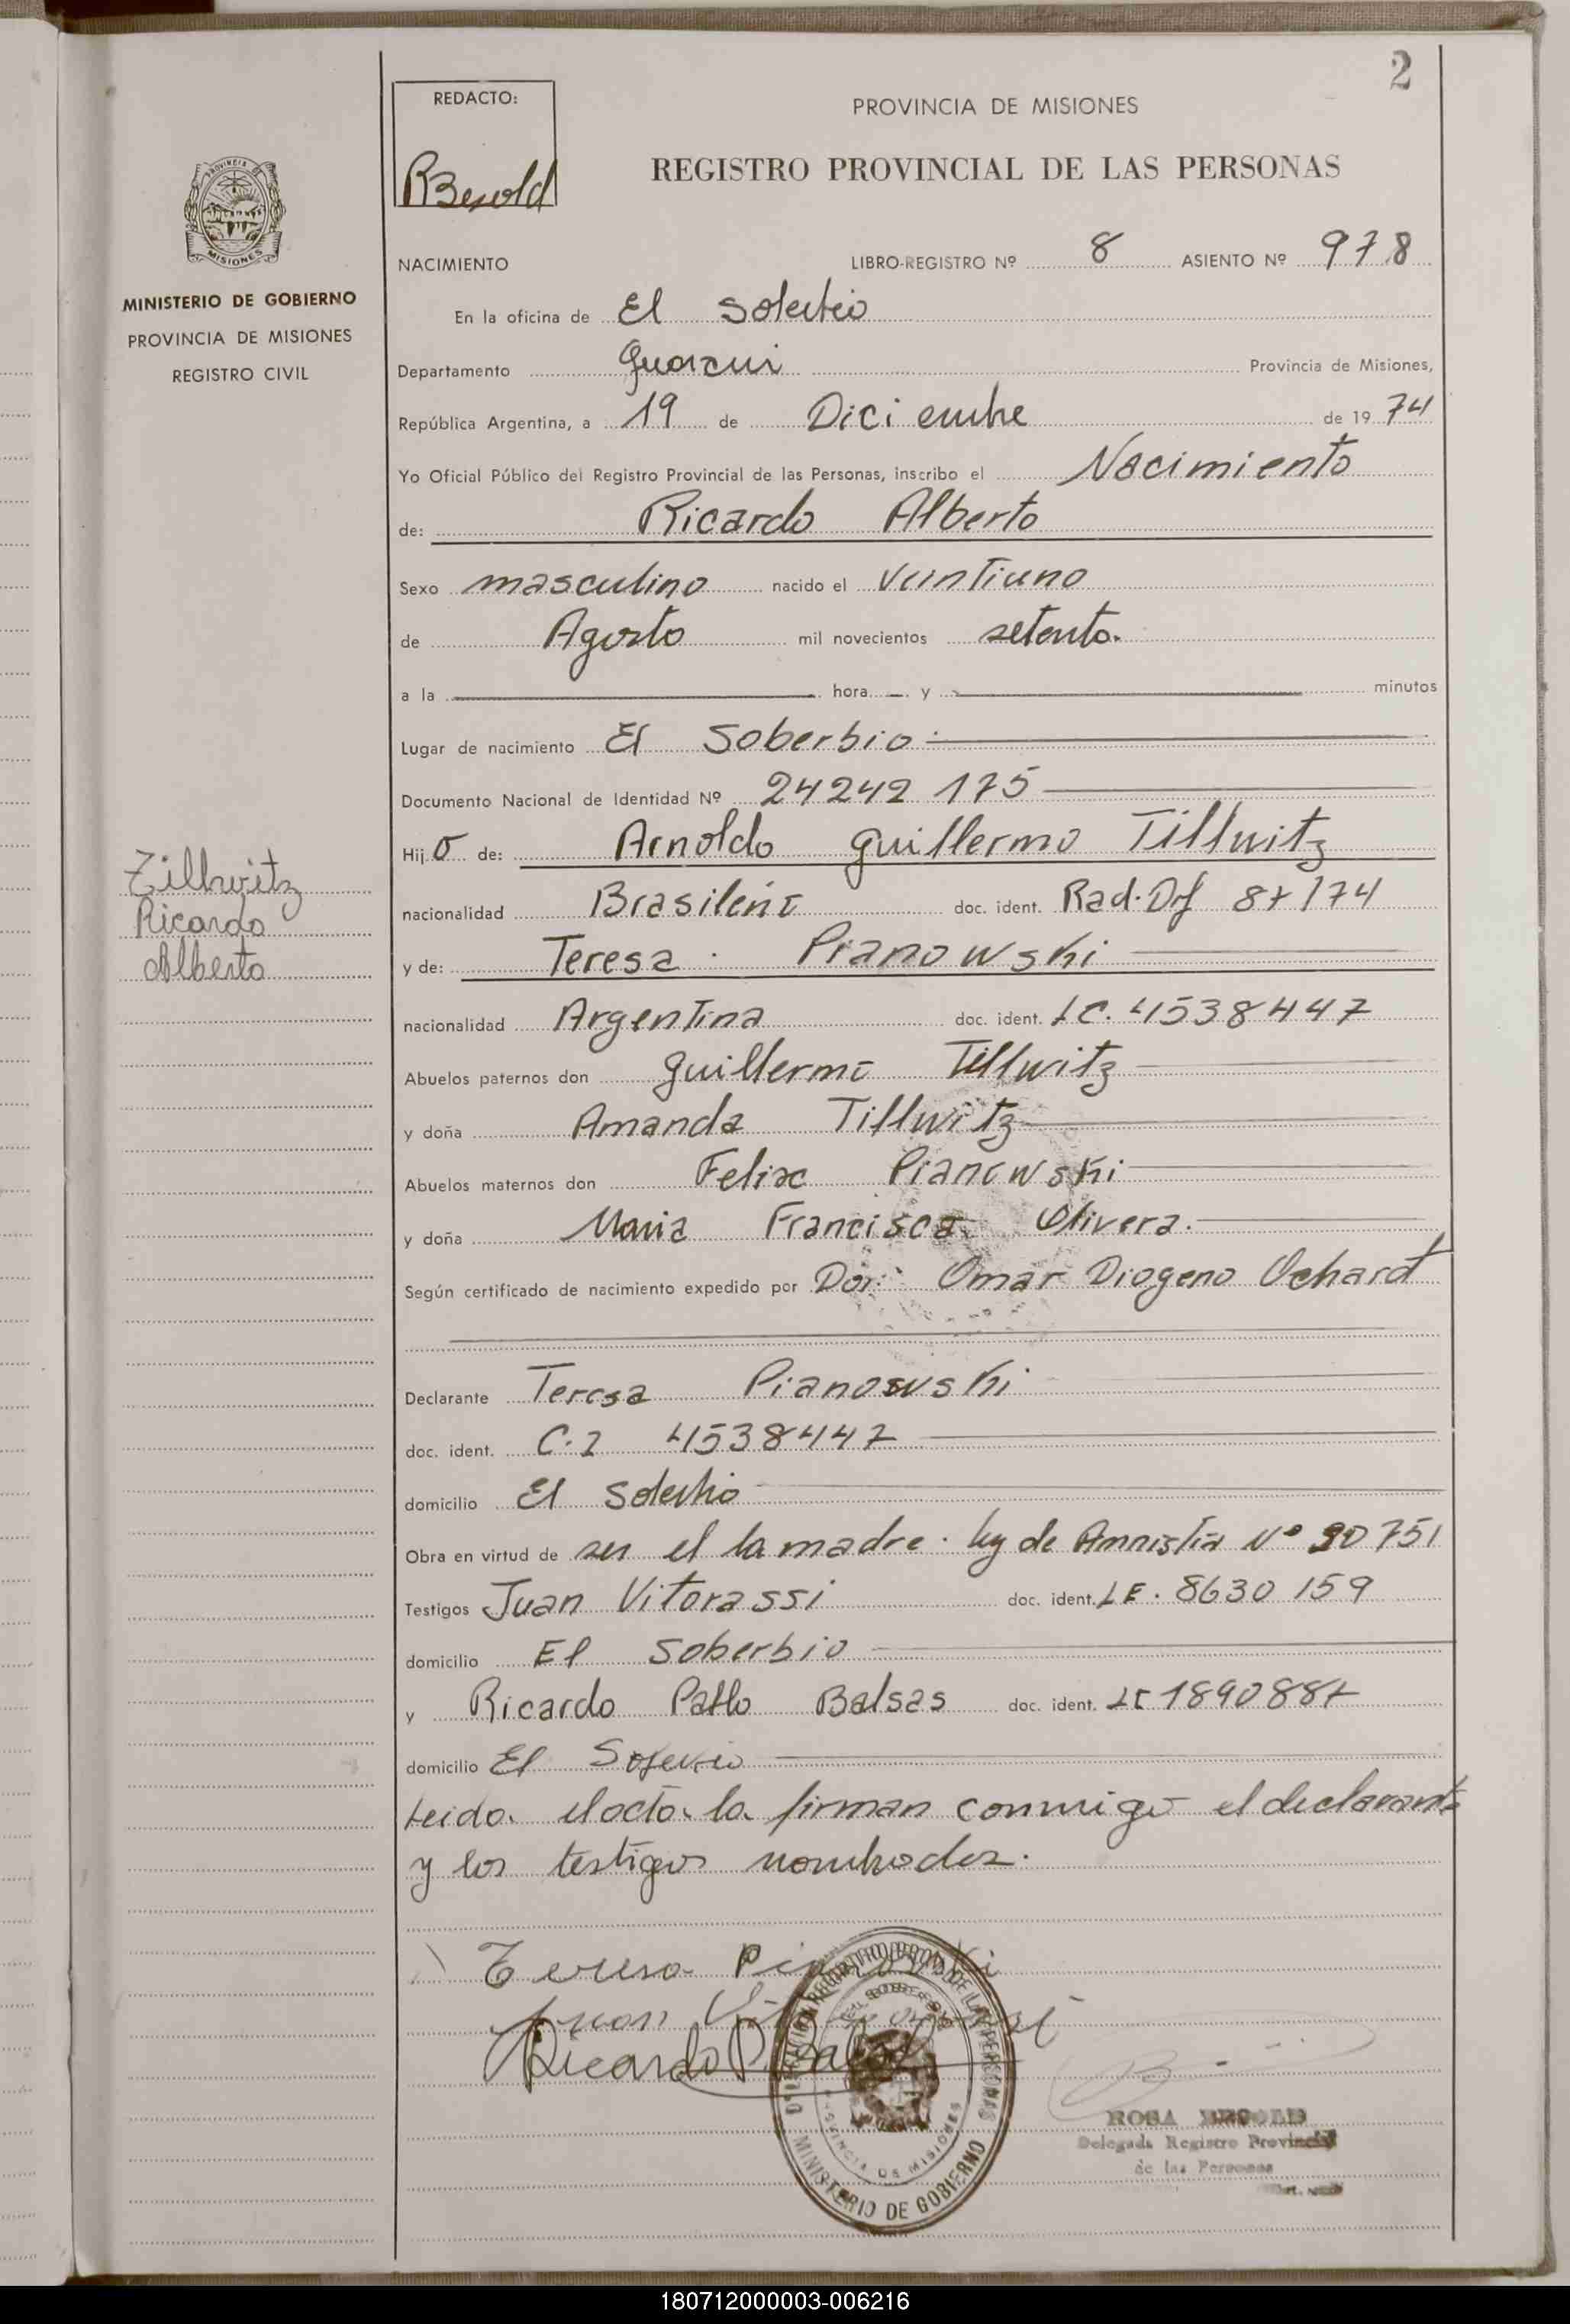 2
REDACTO:
PROVINCIA DE MISIONES
REGISTRO PROVINCIAL DE LAS PERSONAS
PROVINCIA DE
MISIONES
MINISTERIO DE GOBIERNO
PROVINCIA DE MISIONES
REGISTRO CIVIL
NACIMIENTO LIBRO-REGISTRO Nº 8 ASIENTO Nº 978
En la oficina de El Soberbio
Departamento Guarani Provincia de Misiones,
República Argentina, a 19 de Diciembre de 1974
Yo Oficial Público del Registro Provincial de las Personas, inscribo el Nacimiento
de: Ricardo Alberto
Sexo masculino nacido el Veintiuno
de Agosto mil novecientos setenta.
a la hora y minutos
Lugar de nacimiento El Soberbio
Documento Nacional de Identidad Nº 24242 175
Hijo de: Arnoldo Guillermo Tillwitz
Zillwitz
Ricardo
Alberto
nacionalidad Brasileño doc. ident. Rad. Df 87/74
y de: Teresa Pianowski
nacionalidad Argentina doc. ident. LC. 4538447
Abuelos paternos don Guillermo Tillwitz
y doña Amanda Tillwitz
Abuelos maternos don Felix Pianowski
y doña Maria Francisca Olivera.
Según certificado de nacimiento expedido por Dor: Omar Diogeno Ochard
Declarante Teresa Pianowski
doc. ident. C.I 4538447
domicilio El Soberbio
Obra en virtud de ser el la madre. Ley de Amnistia Nº 20751
Testigos Juan Vitorassi doc. ident. LE. 8630 159
domicilio El Soberbio
y Ricardo Pablo Balsas doc. ident. LE 1890887
domicilio El Soberbio
Leida el acta la firman conmigo el declarante
y los testigos nombrados.
Teresa Pianowski
Juan
Ricardo P. Balsas
DELEGACION REGISTRO PROV. DE LAS PERSONAS
EL SOBERBIO
PROVINCIA DE MISIONES
MINISTERIO DE GOBIERNO
ROSA
Delegada Registro Provincial
de las Personas
180712000003-006216